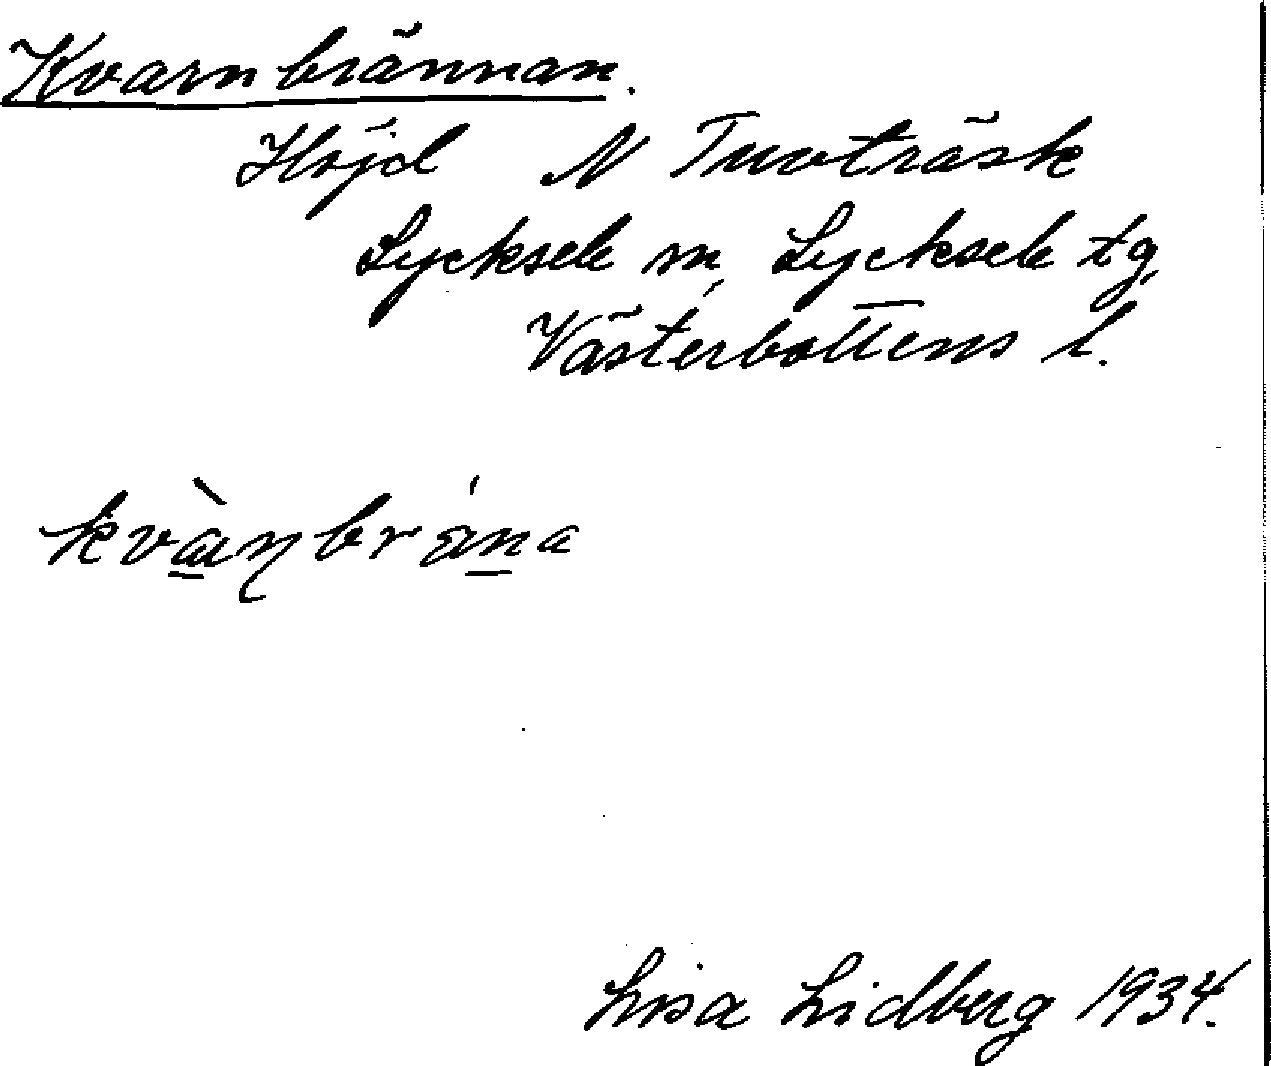 Kvarnbrännan.
Höjd N Tuvoträsk
Lycksele sn, Lycksele tg
Västerbottens l.
kvæ̀ɳbráṉa
Lisa Lidberg 1934.